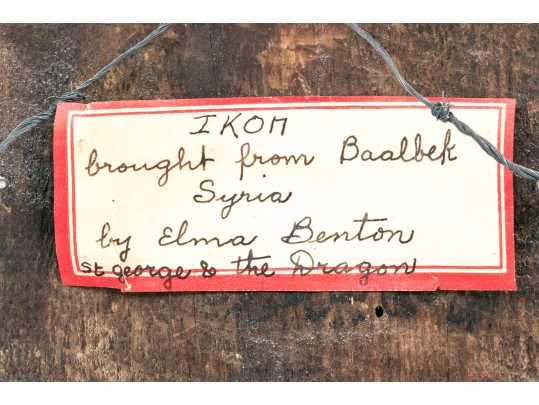 IKON
brought from Baalbek
Syria
by Elma Benton
St george & the Dragon